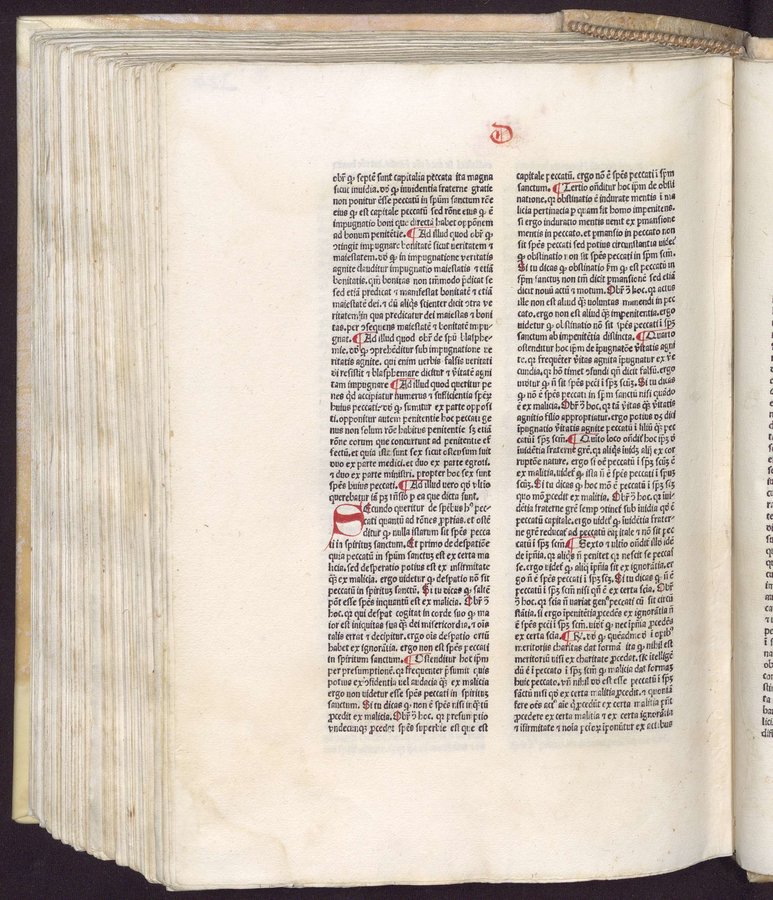 D
obr̄ ꝙ septē sunt capitalia peccata ita magna
sicut inuidia. vō ꝙ inuidentia fraterne gratie
non ponitur esse peccatū in spūm sanctum rōe
eius ꝙ est capitale peccatū sed rōne eius ꝙ ē
impugnatio boni que directā habet oppōnem
ad bonum penitētie. ¶ Ad illud quod obr̄ ꝙ
ↄtingit impugnare bonitatē sicut veritatem ⁊
maiestatem. vō ꝙ in impugnatione veritatis
agnite clauditur impugnatio maiestatis ⁊ etiā
bonitatis. qm̄ bonitas non tm̄modo p̄dicat se
sed etiā predicat ⁊ manifestat bonitatē ⁊ etiā
maiestatē dei. ⁊ dū aliqͥs scienter dicit ↄtra ve
ritatem in qua predicatur dei maiestas ⁊ boni
tas. per ↄsequens maiestatē ⁊ bonitatē impu
gnat. ¶ Ad illud quod obr̄ de spū blasphe-
mie. vō ꝙ ↄprehēditur sub impugnatione ve
ritatis agnite. qui enim verbis falsis veritati
vi resistit ⁊ blasphemare dicitur ⁊ v̄itatē agni
tam impugnare ¶ Ad illud quod queritur pe
nes qd̓ accipiatur numerus ⁊ sufficientia spēꝝ
huius peccati. vō ꝙ sumitur ex parte opposi
ti. opponitur autem penitentie hoc peccati ge
nus non solum rōne habitus penitentie sꝫ etiā
rōne eorum que concurrunt ad penitentie ef
fectū. et quia iste sunt sex sicut ostensum fuit
duo ex parte medici. et duo ex parte egroti.
⁊ duo ex parte ministri. propter hoc sex sunt
spēs huius peccati. ¶ Ad illud vero qd̓ vltio
querebatur iā pꝫ rn̄sio ꝑ ea que dicta sunt.
Secundo queritur de spēbus hꝰ pec-
cati quantū ad rōnes ꝓprias. et ostē
ditur ꝙ nulla istarum sit spēs pecca
ti in spiritus sanctum. Et primo de despatiōe
quia peccatū in spūm sanctuꝫ est ex certa ma
licia. sed desperatio potius est ex infirmitate
qͣꝫ ex malicia. ergo videtur ꝙ despatio nō sit
peccatū in spiritū sanctū. Si tu dicas ꝙ saltē
pōt esse spēs inquantū est ex malicia. Obr̄ ↄ̄
hoc. qꝛ qui despat cogitat in corde suo ꝙ ma
ior est iniquitas sua qͣꝫ dei misericordia. ⁊ oīs
talis errat ⁊ decipitur. ergo oīs despatio ortū
habet ex ignorātia. ergo non est spēs peccati
in spiritum sanctum. ¶ Ostenditur hoc ip̄m
per presumptionē. qꝛ frequenter p̄sumit quis
potius ex ↄfidentia vel audacia qͣꝫ ex malicia
ergo non videtur esse spēs peccati in spirituꝫ
sanctum. Si tu dicas ꝙ non ē spēs nisi inqͣꝫtū
ꝓcedit ex malicia. Obr̄ ↄ̄ hoc. qꝛ presumptio
vndecunqꝫ ꝓcedat spēs superbie est que est
capitale peccatū. ergo nō ē spēs peccati ī spm̄
sanctum. ¶ Tertio ondītur hoc ip̄m de obsti
natione. qꝛ obstinatio ē indurate mentis ī ma
licia pertinacia ꝑ quam fit homo impenitens.
si ergo induratio mentis venit ex ꝑmansione
mentis in peccato. et ꝑmansio in peccato non
sit spēs peccati sed potius circūstantia videtꝰ
ꝙ obstinatio non sit spēs peccati in spm̄ scm̄.
Si tu dicas ꝙ obstinatio fm̄ ꝙ est peccatū in
spm̄ sanctuꝫ non tm̄ dicit ꝑmansionē sed etiā
dicit nouū actū ⁊ motum. Obr̄ ↄ̄ hoc. qꝛ actus
ille non est aliud qͣꝫ voluntas manendi in pec
cato. ergo non est aliud qͣꝫ impenitentia. ergo
videtur ꝙ obstinatio nō sit spēs peccati ī spꝫ
sanctum ab impenitētia distincta. ¶ Quarto
ostenditur hoc ip̄m de īpugnatōe v̄itatis agni
te. qꝛ frequēter v̄itas agnita īpugnatur ex ve
cundia. qꝛ hō timet ↄfundi qn̄ dicit falsū. ergo
videtur ꝙ n̄ sit spēs pecti ī spꝫ scūꝫ. Si tu dicas
ꝙ nō ē spēs peccati in spm̄ sanctū nisi quādo
ē ex malicia. Obr̄ ↄ̄ hoc. qꝛ tā v̄itas qͣꝫ v̄itatis
agnitio filio appropriatur. ergo potius dꝫ dici
īpugnatio v̄itatis agnite peccatū ī filiū qͣꝫ pec
catū ī spꝫ scm̄. ¶ Quīto loco ondīt̓ hoc ip̄ꝫ d̓
īuidētia fraterne gr̄e. qꝛ aliqͥs iuidꝫ alij ex cor
ruptōe nature. ergo si oē peccatū ī spꝫ scūꝫ ē
ex malitia. videtꝰ ꝙ ista n̄ ē spēs peccati ī spūs
scūꝫ. Si tu dicas ꝙ hoc mō ē peccatū ī spꝫ scꝫ
quo mō ꝓcedit ex malitia. Obr̄ ↄ̄ hoc. qꝛ iui-
dētia fraterne gr̄e semp ↄtinet̓ sub inuidia qd̓ ē
peccatū capitale. ergo videt̓ ꝙ iuidētia frater-
ne gr̄e reducat̓ ad peccatū capitale ⁊ nō sit pec
catū ī spꝫ scm̄. ¶ Sexto ⁊ vltio ondīt̓ illō idē
de īp̄nia. qꝛ aliqͥs n̄ penitet qꝛ nescit se peccas
se. ergo videt̓ ꝙ aliqͣ īp̄nia sit ex ignorātia. er
go n̄ ē spēs peccati ī spꝫ scꝫ. Si tu dicas ꝙ n̄ ē
peccatū ī spꝫ scm̄ nisi qn̄ ē ex certa scīa. Obr̄
ↄ̄ hoc. qꝛ scīa n̄ variat genꝰ peccati cū sit circū
stātia. si ergo īpenitētia ꝓcedēs ex ignorātia n̄
ē spēs pecti ī spꝫ scm̄. videt̓ ꝙ nec īp̄nia ꝓcedēs
ex certa scīa. ¶ R̄. vō ꝙ quēadmodū ī oꝑibꝰ
meritorijs charitas dat formā ita ꝙ nihil est
meritoriū nisi ex charitate ꝓcedat. sic ītelligē
dū ē ī peccato ī spꝫ scm̄ ꝙ malicia dat formaꝫ
huic peccato. vn̄ nihil dꝫ est esse peccatū ī spꝫ
sāctū nisi qd̓ ex certa malitia ꝓcedit. ⁊ quoniā
fere oēs actꝰ aīe qͥ ꝓcedūt ex certa malitia pn̄t
ꝓcedere ex certa malitia ⁊ ex certa ignorātia
⁊ īfirmitate ⁊ noīa pctoꝝ īponūtur ex actibus